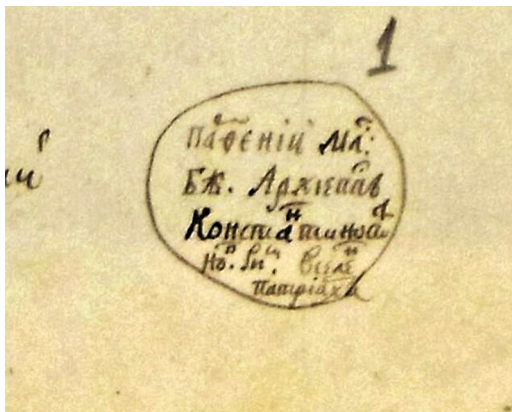 1
Паѳеній Мл:
Бж. Архіепп
Константиноп
Нв. Рм. Вселе
Патріаха